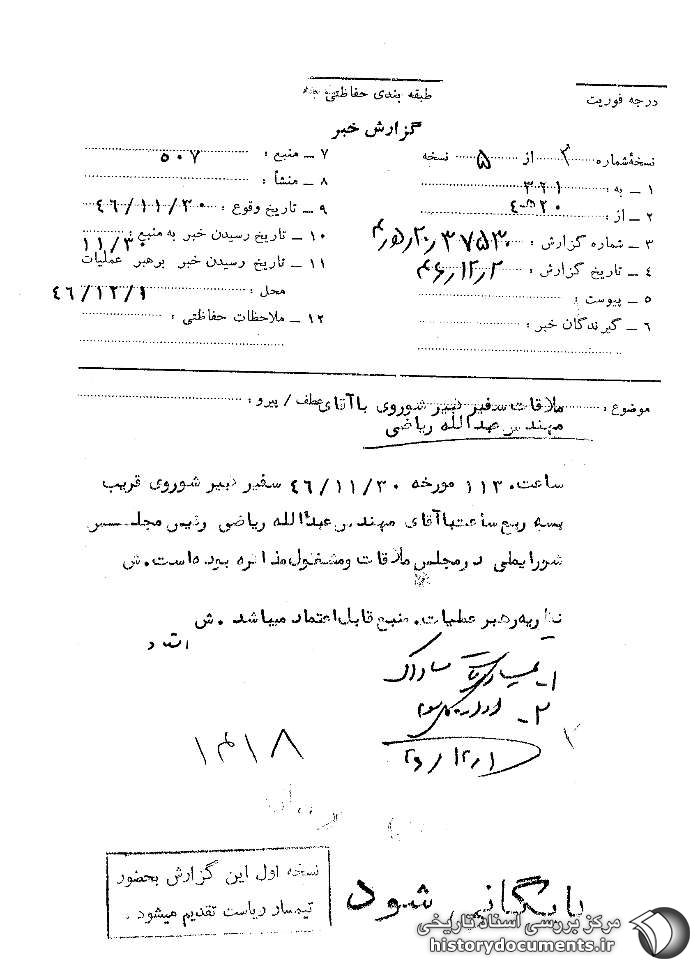 درجه فوریت
طبقه بندی حفاظتی
گزارش خبر
نسخهٔ شماره ۳ از ۵ نسخه
۱ ــ به : ۳۲۱
۲ ــ از : ۲۰ه۴
۳ ــ شماره گزارش :
۴ ــ تاریخ گزارش : ۴۶٫۱۲٫۲
۵ ــ پیوست :
۶ ــ گیرندگان خبر :
۷ ــ منبع : ۵۰۷
۸ ــ منشأ :
۹ ــ تاریخ وقوع : ۴۶/۱۱/۳۰
۱۰ ــ تاریخ رسیدن خبر به منبع : ۱۱/۳۰
۱۱ ــ تاریخ رسیدن خبر برهبر عملیات
محل : ۴۶/۱۲/۱
۱۲ ــ ملاحظات حفاظتی :
موضوع : ملاقات سفیر کبیر شوروی با آقای عطف / پیرو :
مهندس عبدالله ریاضی
ساعت مورخه ۴۶/۱۱/۳۰ سفیر کبیر شوروی قریب
بسه ربع ساعت با آقای مهندس عبدالله ریاضی رئیس مجلس
شورایملی در مجلس ملاقات و مشغول مذاکره بوده است. ش
نظریه رهبر عملیات. منبع قابل اعتماد میباشد . ش
۱ـ تیمسار ریاست ساواک
۲ـ اداره کل سوم
۱۴۱۸
نسخه اول این گزارش بحضور
تیمسار ریاست تقدیم میشود .
بایگانی شود
مرکز بررسی اسناد تاریخی
historydocuments.ir